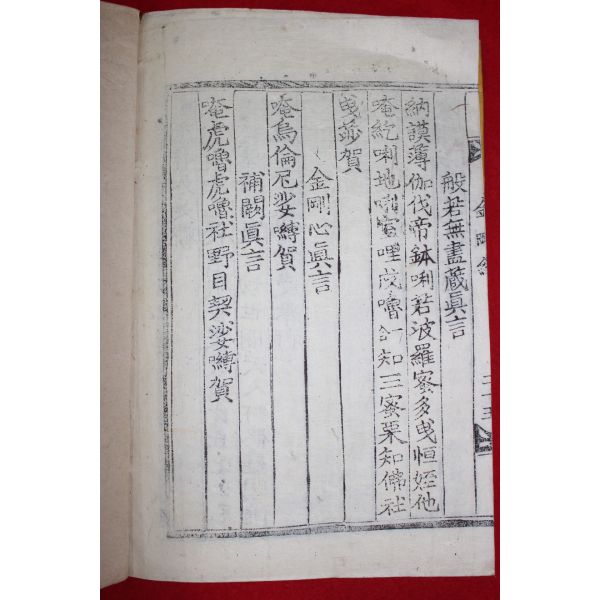 金剛經
般若無盡藏眞言
納謨薄伽伐帝鉢唎若波羅蜜多曳恒姪他
唵紇唎地唎室哩戍嚕知三蜜栗知佛社
曳莎賀
金剛心眞言
唵烏倫尼娑嚩賀
補闕眞言
唵虎嚕虎嚕社野目契娑嚩賀